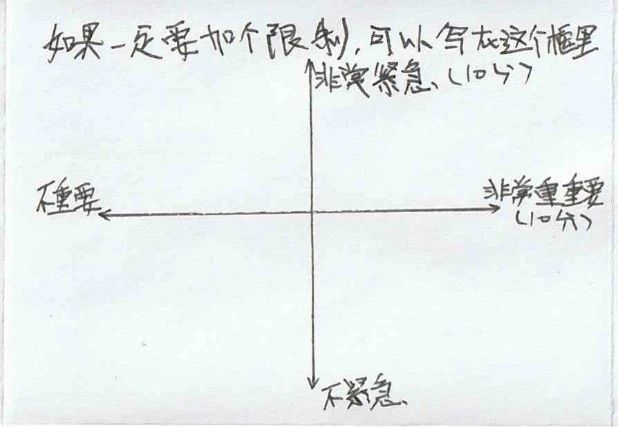 如果一定要加个限制,可以写在这个框里
非常紧急、(10分)
不重要
非常重重要
(10分)
不紧急、